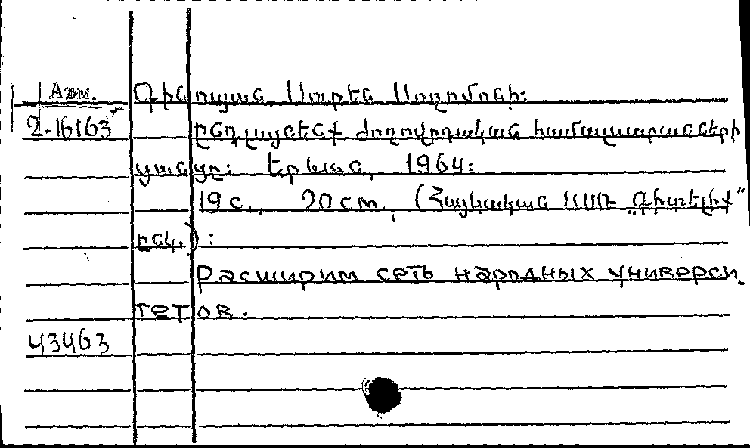 Ազգ.
Դինոյան Սուրեն Սողոմոնի:
2-16163
ընդլայնենք ժողովրդական համալսարանների
ցանցը: Երևան, 1964:
19 с., 20 cm, (Հայկական ՍՍՌ „Գիտելիք”
ընկ.):
Расширим сеть народных универси
тетов.
43463